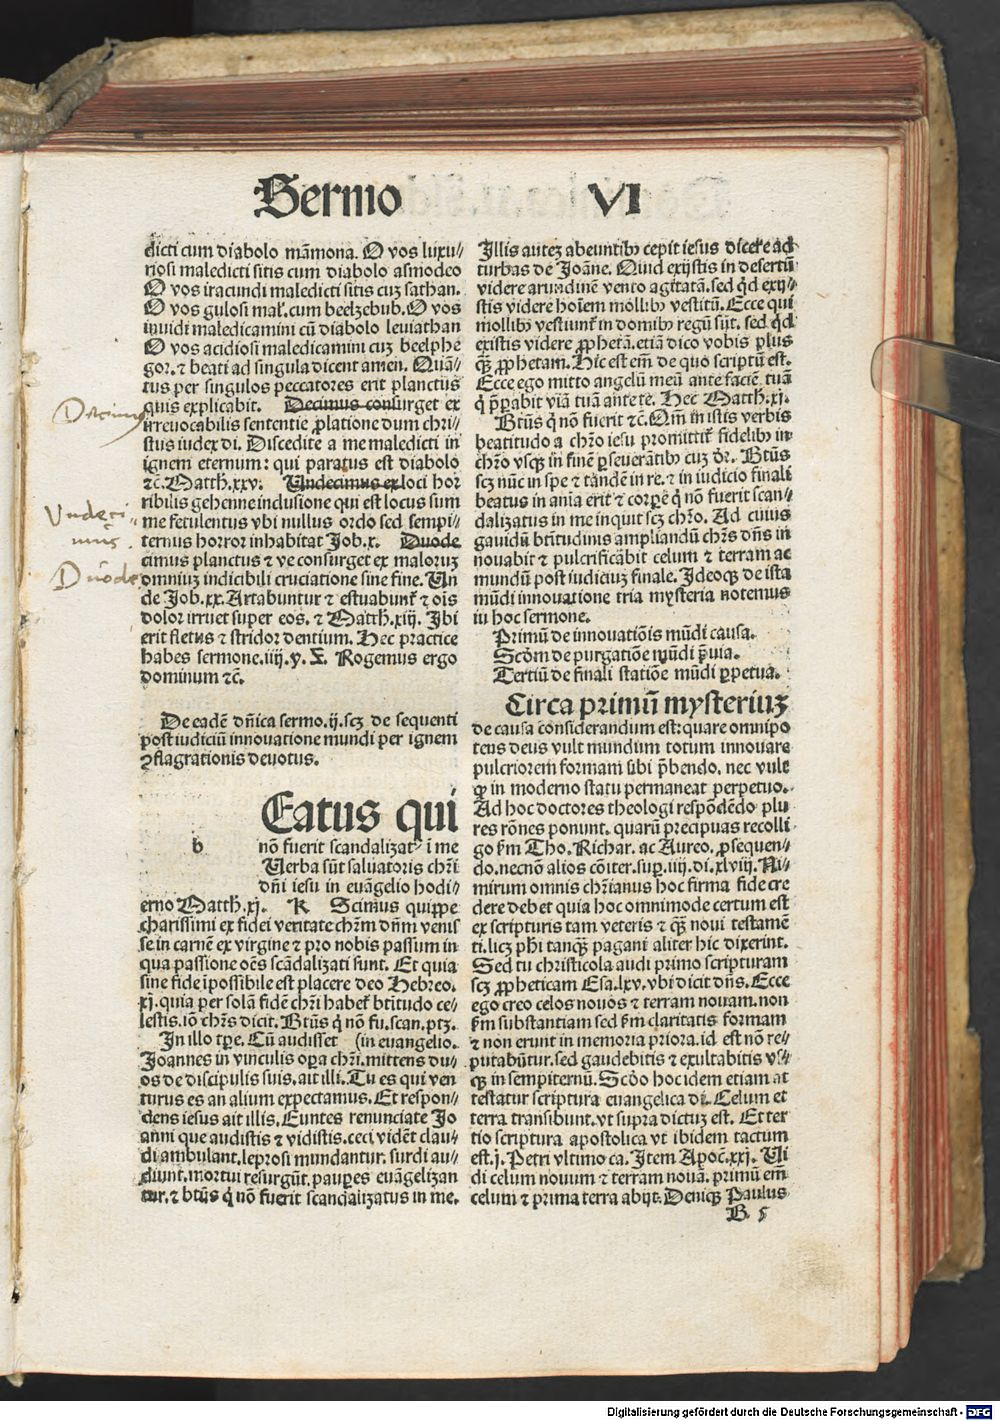 Sermo VI
dicti cum diabolo mãmona. O vos luxu⸗
riosi maledicti sitis cum diabolo asmodeo
O vos iracundi maledicti sitis cuz sathan.
O vos gulosi mal̃. cum beelzebub. O vos
inuidi maledicamini cũ diabolo leuiathan
O vos acidiosi maledicamini cuz beelphe
gor. ⁊ beati ad singula dicent amen. Quã⸗
tus per singulos peccatores erit planctus
quis explicabit. Decimus consurget ex
irreuocabilis sententie ꝓlatione dum chri⸗
stus iudex di. Discedite a me maledicti in
ignem eternum: qui paratus est diabolo
⁊c̃. Matth. xxv. Undecimus ex loci hor
ribilis gehenne inclusione qui est locus sum
me fetulentus vbi nullus ordo sed sempi⸗
ternus horror inhabitat Job. x. Duode
cimus planctus ⁊ ve consurget ex maloruz
omniuz indicibili cruciatione sine fine. Un
de Job. xx. Artabuntur ⁊ estuabunt̃ ⁊ ois
dolor irruet super eos. ⁊ Matth̃. xiij. Ibi
erit fletus ⁊ stridor dentium. Hec practice
habes sermone. iiij. y. X̃. Rogemus ergo
dominum ⁊c̃.
Decimus
Undeci⸗
mus.
Duode
De eadẽ dñica sermo. ij. scz de sequenti
post iudiciũ innouatione mundi per ignem
ↄflagrationis deuotus.
b
Eatus qui
nõ fuerit scandalizat᷒ ĩ me
Uerba sũt saluatoris chr̃i
dñi iesu in euãgelio hodi⸗
erno Matth. xj. R Scimus quippe
charissimi ex fidei veritate chr̃m dñm venis
se in carnẽ ex virgine ⁊ pro nobis passum in
qua passione oẽs scãdalizati sunt. Et quia
sine fide ĩpossibile est placere deo Hebreo.
xj. quia per solã fidẽ chr̃i habet̃ btĩtudo ce⸗
lestis. iõ chr̃s dicit. Btũs q̇ nõ fu. scan. ptz.
In illo tp̃e. Cũ audisset (in euangelio.
Joannes in vinculis opa chr̃i. mittens du⸗
os de discipulis suis. ait illi. Tu es qui ven
turus es an alium expectamus. Et respon⸗
dens iesus ait illis. Euntes renunciate Jo
anni que audistis ⁊ vidistis. ceci vidẽt clau⸗
di ambulant. leprosi mundantur. surdi au⸗
diunt. mortui resurgũt. pauꝑes euãgelizan
tur. ⁊ btũs q̇ nõ fuerit scandalizatus in me.
Illis autez abeuntibꝰ cepit iesus dicere ad
turbas de Joãne. Quid exijstis in desertũ
videre arundinẽ vento agitatã. sed qd exij⸗
stis videre hoĩem mollibꝰ vestitũ. Ecce qui
mollibꝰ vestiunt̃ in domibꝰ regũ sũt. sed qd
existis videre ꝓphetã. etiã dico vobis plus
qꝫ̃ ꝓphetam. Hic est em̃ de quo scriptũ est.
Ecce ego mitto angelũ meũ ante faciẽ tuã
q̇ p̃parabit viã tuã ante te. Hec Matth. xj.
Btũs q̇ nõ fuerit ⁊c̃. Qm̃ in istis verbis
beatitudo a chr̃o iesu promittit̃ fidelibꝰ in
chr̃o vsqꝫ in finẽ ꝑseuerãtibꝰ cuz dr̃. Btũs
scz nũc in spe ⁊ tãdẽ in re. ⁊ in iudicio finali
beatus in ania erit ⁊ corpẽ q̇ nõ fuerit scan⸗
dalizatus in me inquit scz chr̃o. Ad cuius
gauidũ btĩtudinis ampliandũ chr̃s dñs in
nouabit ⁊ pulcrificãbit celum ⁊ terram ac
mundũ post iudiciuz finale. Ideoqꝫ de ista
mũdi innouatione tria mysteria notemus
in hoc sermone.
Primũ de innouatiõis mũdi causa.
Scdm̃ de purgatiõe mũdi p̃uia.
Tertiũ de finali statiõe mũdi ꝑpetua.
Circa primũ mysteriuz
de causa considerandum est: quare omnipo
tens deus vult mundum totum innouare
pulcriorem formam sibi p̃bendo. nec vult
qꝫ in moderno statu permaneat perpetuo.
Ad hoc doctores theologi respõdẽdo plu
res rõnes ponunt. quarũ precipuas recolli
go ẞm Tho. Richar. ac Aureo. ꝓsequen⸗
do. necnõ alios cõiter. sup. iiij. di. xlviij. Ni⸗
mirum omnis chr̃ianus hoc firma fide cre
dere debet quia hoc omnimode certum est
ex scripturis tam veteris ⁊ qꝫ̃ noui testamẽ
ti. licz phi tanqꝫ pagani aliter hic dixerint.
Sed tu christicola audi primo scripturam
scz ꝓpheticam Esa. lxv. vbi dicit dñs. Ecce
ego creo celos nouos ⁊ terram nouam. non
ẞm substantiam sed ẞm claritatis formam
⁊ non erunt in memoria priora. id est nõ re⸗
putabũtur. sed gaudebitis ⁊ exultabitis vs⸗
qꝫ in sempiternũ. Scdo hoc idem etiam at
testatur scriptura euangelica di. Celum et
terra transibunt. vt supra dictuz est. Et ter
tio scriptura apostolica vt ibidem tactum
est. j. Petri vltimo ca. Item Apoc̃. xxj. Ui
di celum nouum ⁊ terram nouã. primũ em̃
celum ⁊ prima terra abijt. Deniqꝫ Paulus
B. 5
Digitalisierung gefördert durch die Deutsche Forschungsgemeinschaft - DFG